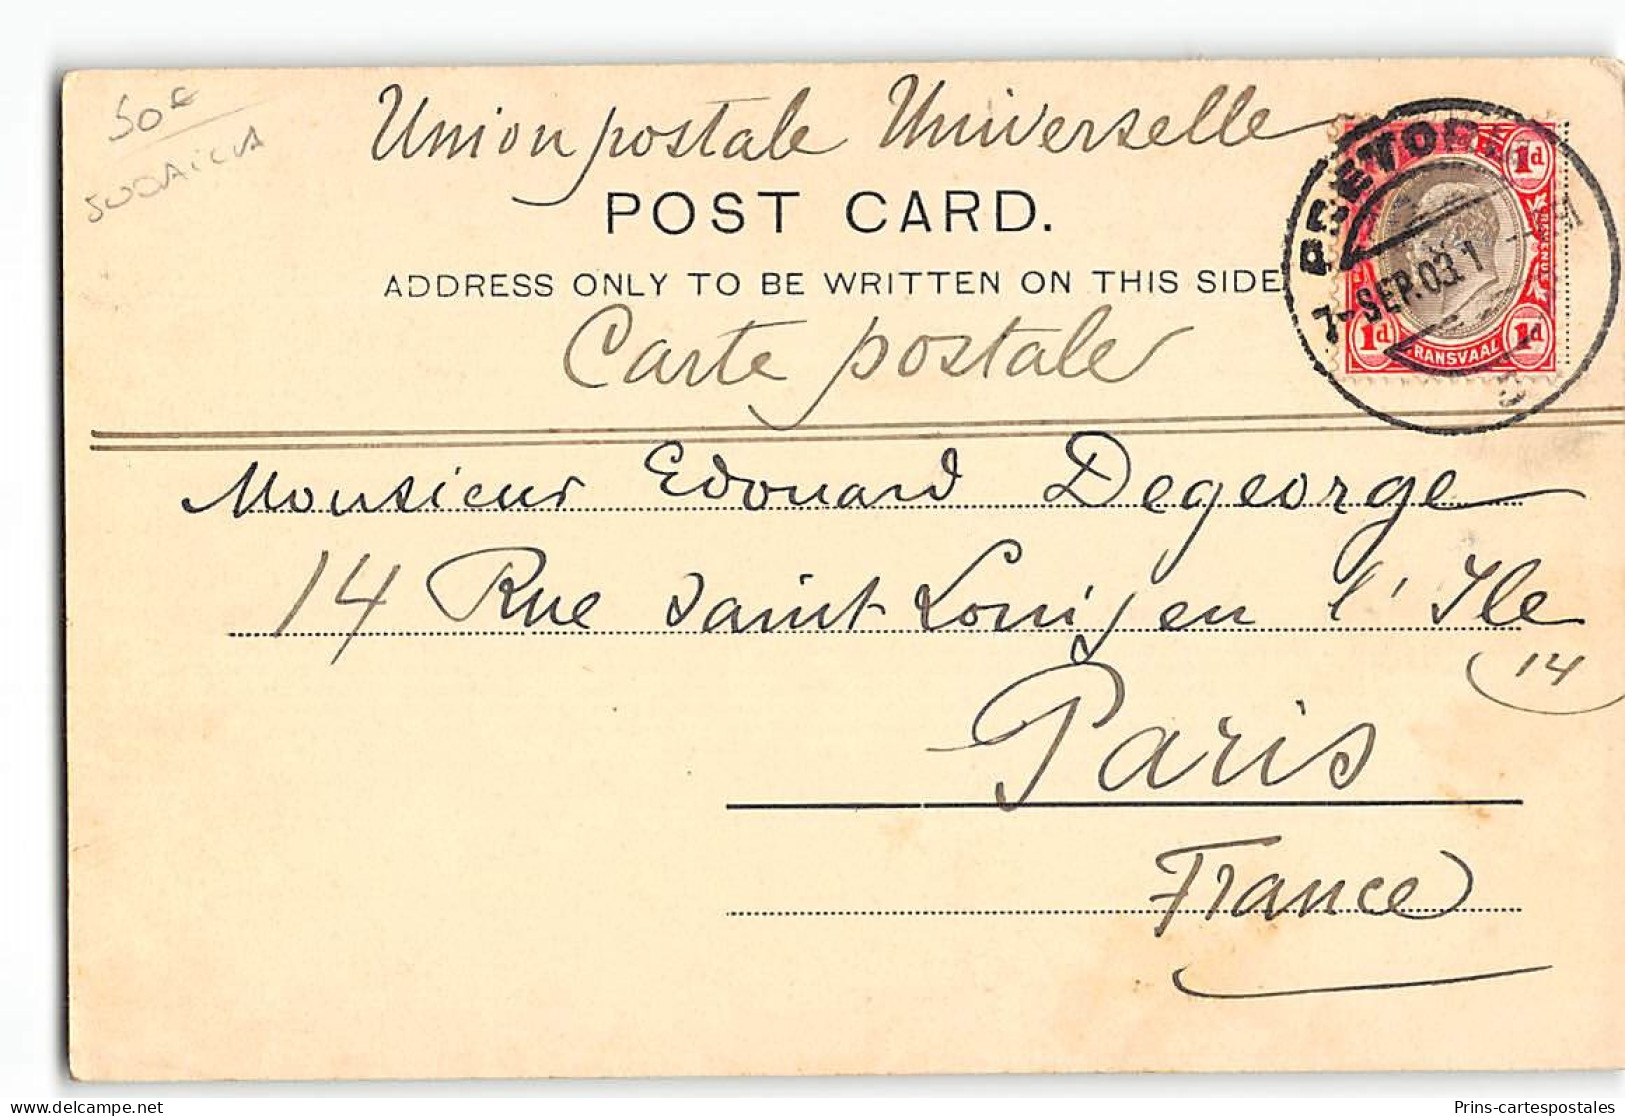 50€
JUDAICA
Union postale Universelle
POST CARD.
ADDRESS ONLY TO BE WRITTEN ON THIS SIDE
Carte postale
PRETORIA
7-SEP.03.1
1d
1d 1d
TRANSVAAL
Monsieur Edouard Degeorge
14 Rue Saint Louis en l'Ile
14
Paris
France
Prins-cartespostales